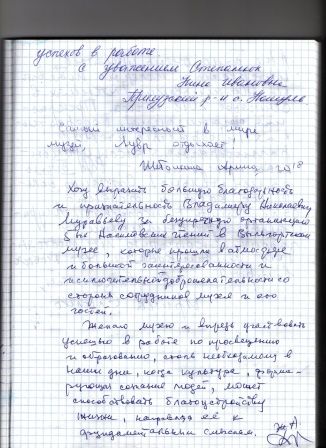 успехов в работе.
С уважением Степанюк
Нина Ивановна
Прилузский р-н с. Ношуль
Самый интересный в мире
музей, Лувр отдыхает!
Арина,
Хочу выразить большую благодарность
и признательность Владимиру Николаевичу
Муравьеву за безупречную организацию
в Выльгортском
музее, которые прошли в атмосфере
и большой заинтересованности и
исключительной доброжелательности со
стороны сотрудников музея и его
гостей.
Желаю музею и впредь участвовать
успешно в работе по просвещению
и образованию, столь необходимому в
наши дни, когда культура, форми-
рующая сознание людей, может
способствовать благоустройству
жизни, направляя её к
фундаментальным смыслам.